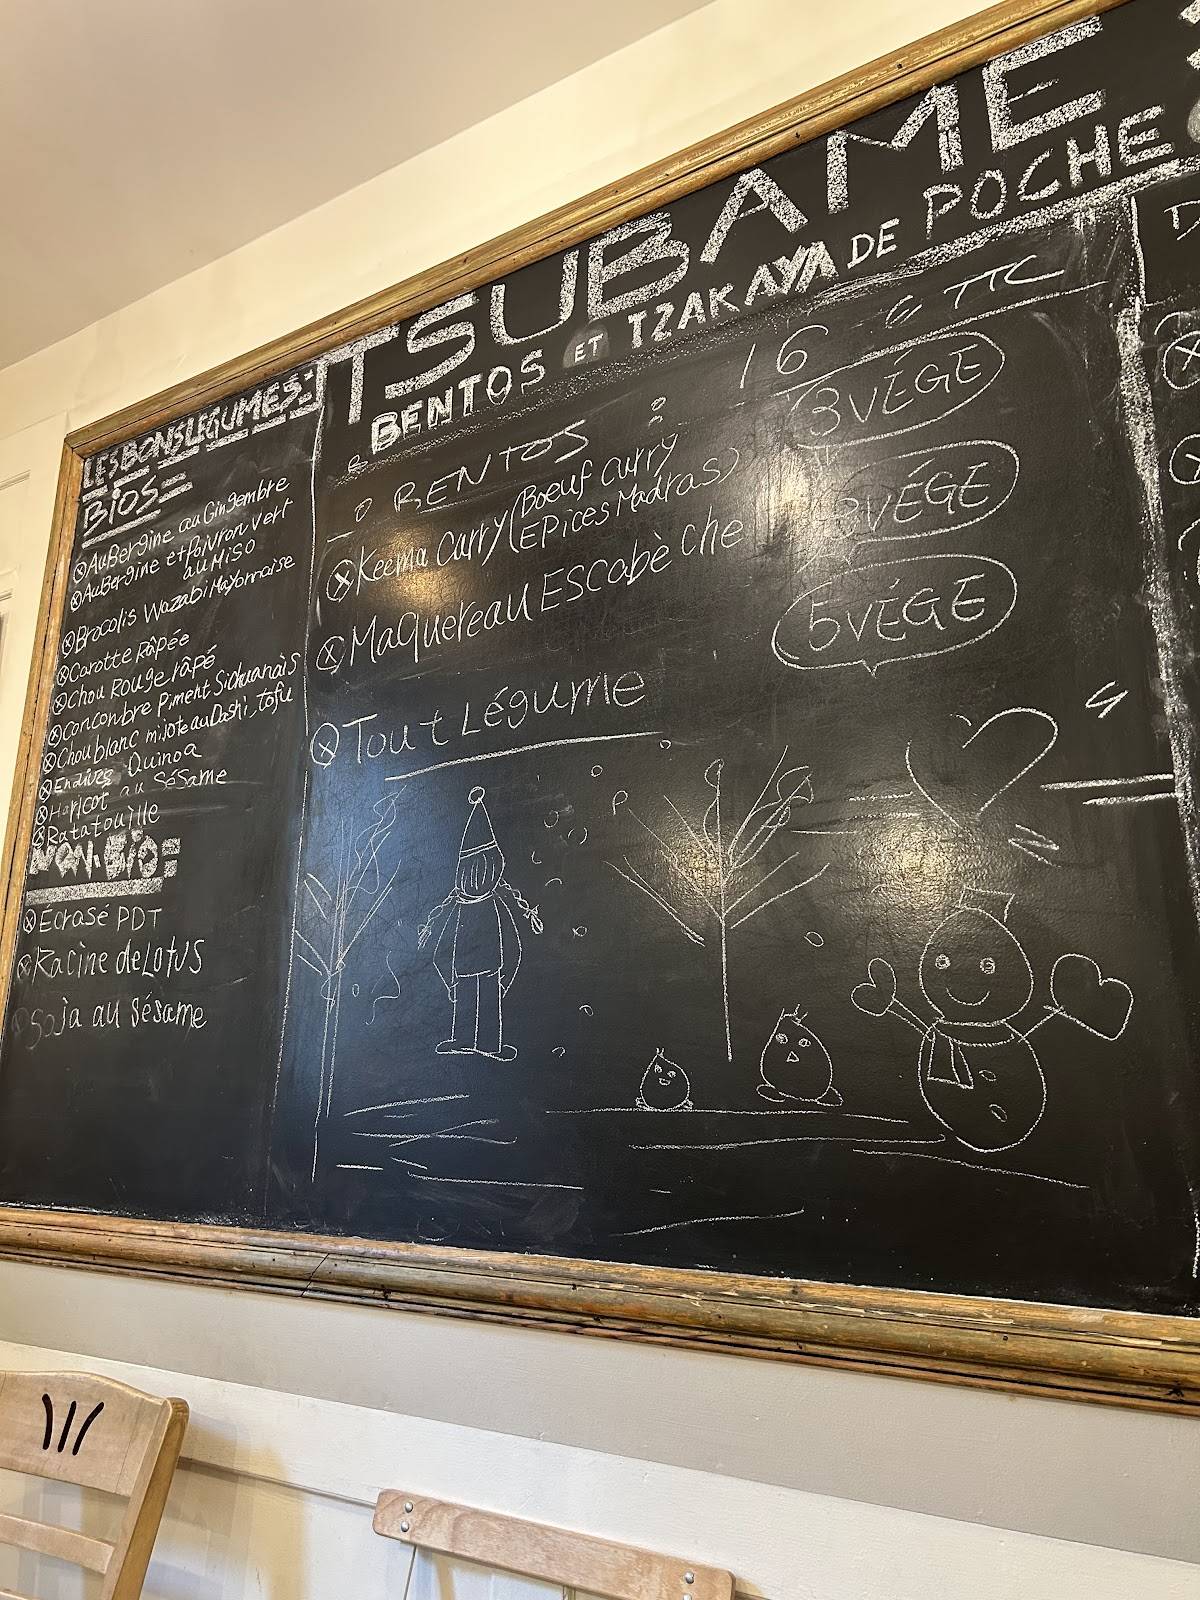 TSUBAME
BENTOS ET TZAKAYA DE POCHE
LES BONS LÉGUMES
BIOS
AuBergine au Gingembre
AuBergine et Poivron vert
au Miso
Brocolis Wazabi Mayonnaise
Carotte Râpée
Chou Rouge râpé
Concombre Piment Sichuanais
Chou blanc mijoté au Dashi, tofu
Endives Quinoa
Haricot au Sésame
Ratatouille
NON. BIO:
Écrasé PDT
Racine de Lotus
Soja au sésame
BENTOS : 16 € TTC
Keema Curry (Boeuf curry
EPices Madras) 3 VÉGE
Maquereau EScabèche 3 VÉGE
Tout Légume 5 VÉGE